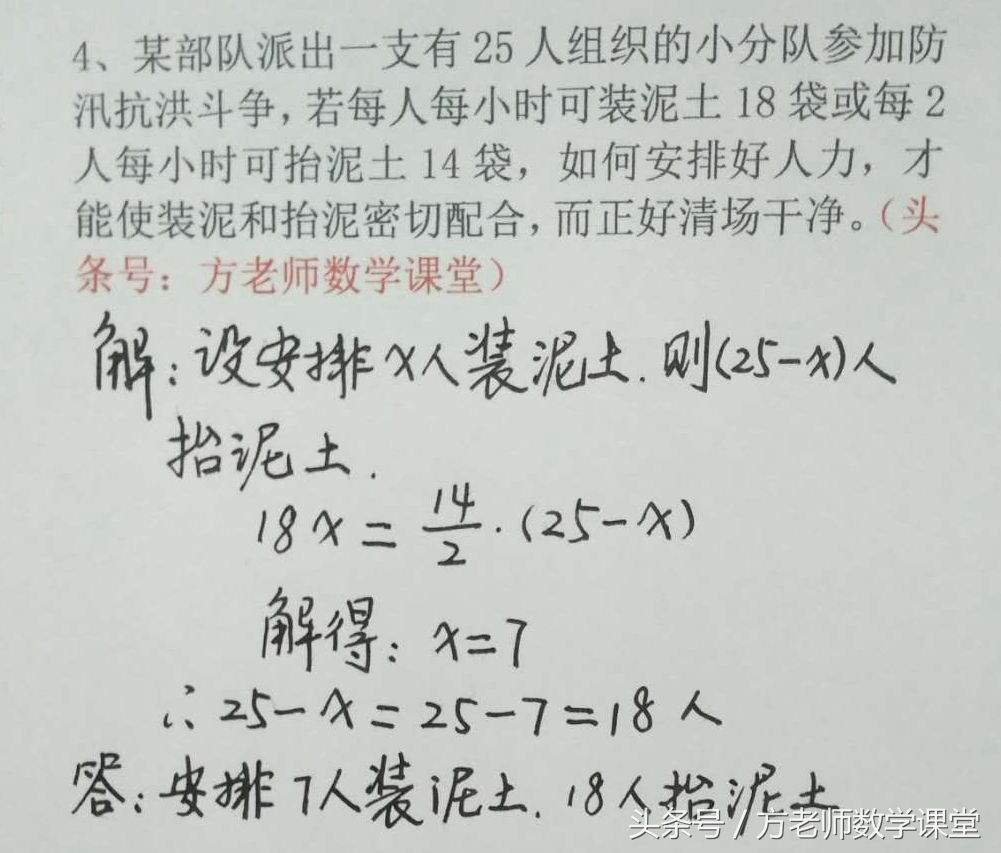 4、某部队派出一支有 25 人组织的小分队参加防
汛抗洪斗争，若每人每小时可装泥土 18 袋或每 2
人每小时可抬泥土 14 袋，如何安排好人力，才
能使装泥和抬泥密切配合，而正好清场干净。（头
条号：方老师数学课堂）
解：设安排x人装泥土．则(25-x)人
抬泥土．
18x = 14/2 ·(25-x)
解得：x=7
∴ 25-x = 25-7=18 人
答：安排7人装泥土．18人抬泥土
头条号 / 方老师数学课堂